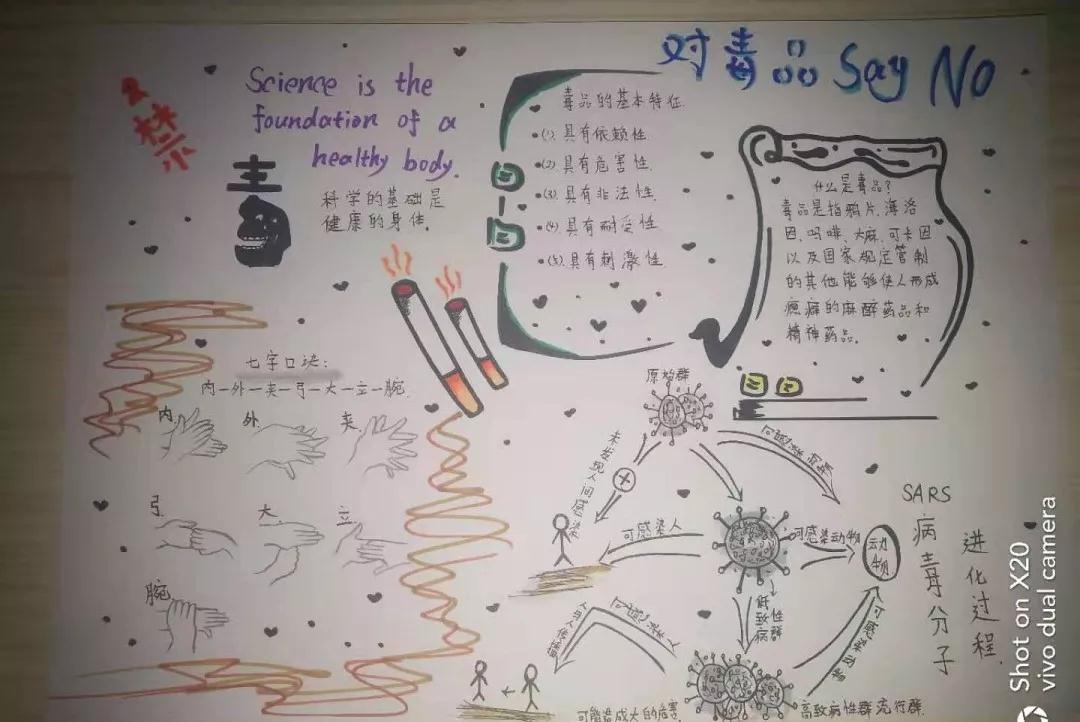 对毒品 Say No
禁
毒
Science is the
foundation of a
healthy body.
科学的基础是
健康的身体。
毒品的基本特征
(1).具有依赖性
(2).具有危害性.
(3).具有非法性.
(4).具有耐受性
(5).具有刺激性.
什么是毒品?
毒品是指鸦片.海洛
因.吗啡.大麻.可卡因
以及国家规定管制
的其他能够使人形成
瘾癖的麻醉药品和
精神药品。
七字口诀:
内一外一夹一弓一大一立一腕.
内
外
夹
弓
大
立
腕
原始群
未发现人间传染
可感染人
可感染动物
动物
低致病性群
人与人传播
可能造成大的危害
高致病性群流行群.
SARS
病毒分子
进化过程.
Shot on X20
vivo dual camera